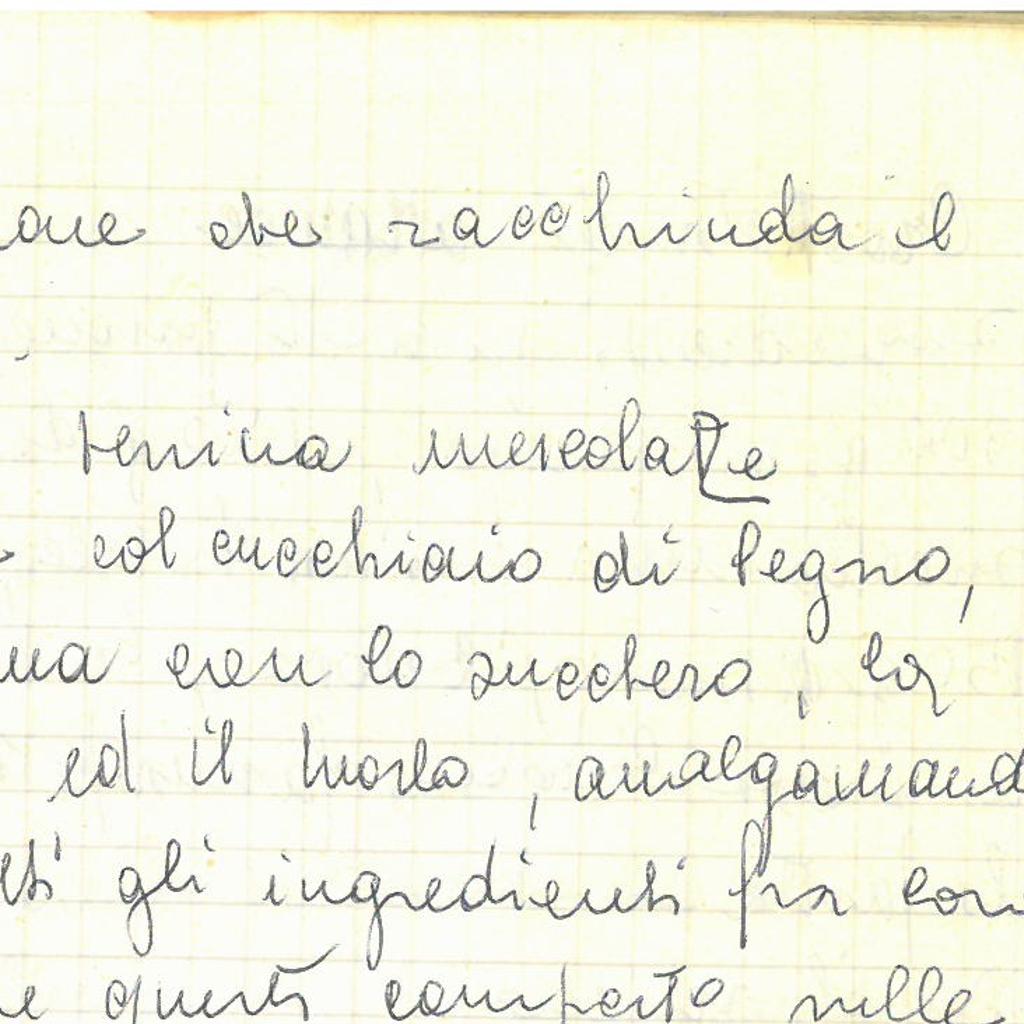 che racchiuda il
terrina mescolate
col cucchiaio di legno,
con lo zucchero, la
ed il tuorlo, amalgamand
gli ingredienti fra
questo composto nelle